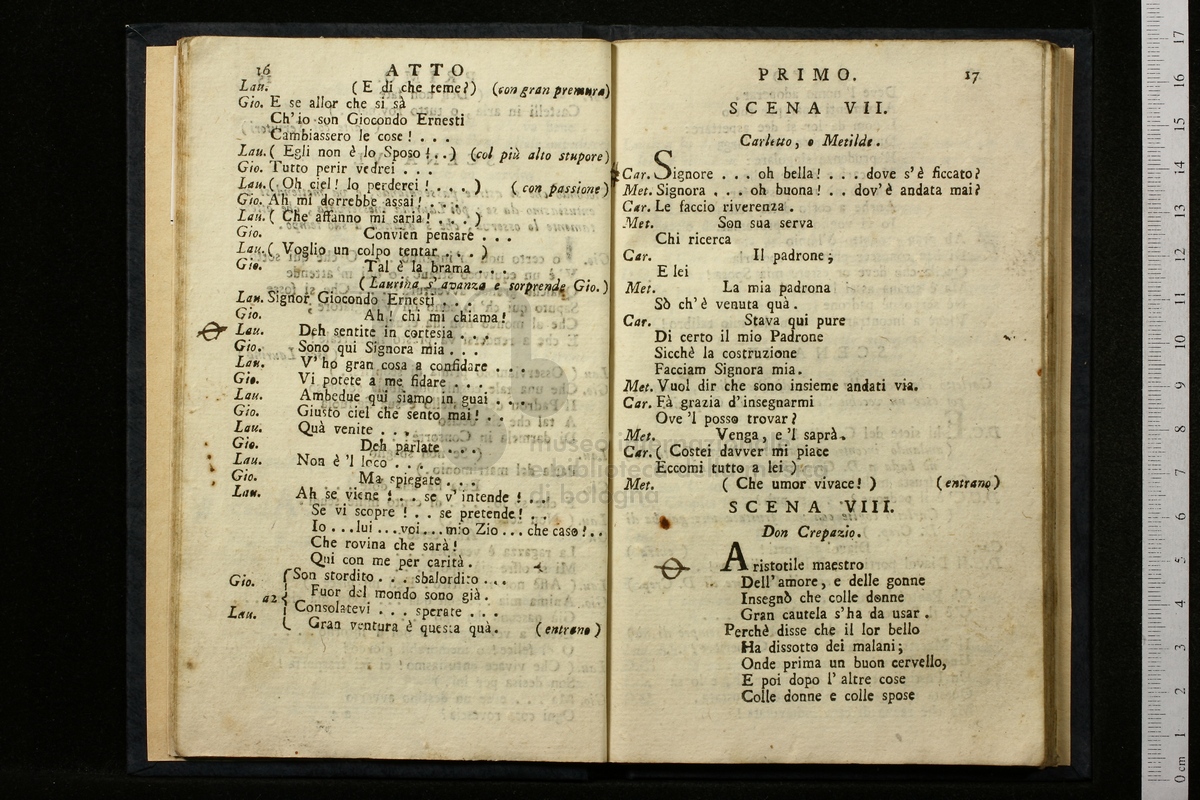 16 ATTO
Lau. ( E di che teme?) (con gran premura)
Gio. E se allor che si sà
Ch'io son Giocondo Ernesti
Cambiassero le cose! . . .
Lau. ( Egli non è lo Sposo!..) (col più alto stupore)
Gio. Tutto perir vedrei . . .
Lau. ( Oh ciel! Io perderei! . . . ) ( con passione )
Gio. Ah mi dorrebbe assai! . . .
Lau. ( Che affanno mi saria! . . . )
Gio. Convien pensare . . .
Lau. ( Voglio un colpo tentar . . . )
Gio. Tal è la brama . . .
( Laurina s'avanza e sorprende Gio. )
Lau. Signor Giocondo Ernesti . . .
Gio. Ah! chi mi chiama!
Lau. Deh sentite in cortesia . . .
Gio. Sono qui Signora mia . . .
Lau. V'ho gran cosa a confidare . . .
Gio. Vi potete a me fidare . . .
Lau. Ambedue qui siamo in guai . . .
Gio. Giusto ciel che sento mai! . .
Lau. Quà venite . . .
Gio. Deh parlate . . .
Lau. Non è 'l loco . . .
Gio. Ma spiegate . . .
Lau. Ah se viene ! . . se v' intende ! . . .
Se vi scopre ! . . se pretende! . .
Io ...lui ...voi...mio Zio ...che caso!..
Che rovina che sarà!
Qui con me per carità.
Gio. Son stordito . . . sbalordito . . .
a2 Fuor del mondo sono già.
Lau. Consolatevi . . . sperate . . .
Gran ventura è questa quà. ( entrano )
PRIMO. 17
SCENA VII.
Carletto, e Metilde.
Car. Signore . . . oh bella! . . . dove s'è ficcato?
Met. Signora . . . oh buona! . . dov'è andata mai?
Car. Le faccio riverenza .
Met. Son sua serva
Chi ricerca
Car. Il padrone;
E lei
Met. La mia padrona
Sò ch'è venuta quà.
Car. Stava qui pure
Di certo il mio Padrone
Sicchè la costruzione
Facciam Signora mia.
Met. Vuol dir che sono insieme andati via.
Car. Fà grazia d'insegnarmi
Ove 'l posso trovar?
Met. Venga, e 'l saprà.
Car. ( Costei davver mi piace
Eccomi tutto a lei )
Met. ( Che umor vivace! ) (entrano)
SCENA VIII.
Don Crepazio.
Aristotile maestro
Dell'amore, e delle gonne
Insegnò che colle donne
Gran cautela s'ha da usar .
Perchè disse che il lor bello
Ha dissotto dei malani;
Onde prima un buon cervello,
E poi dopo l'altre cose
Colle donne e colle spose